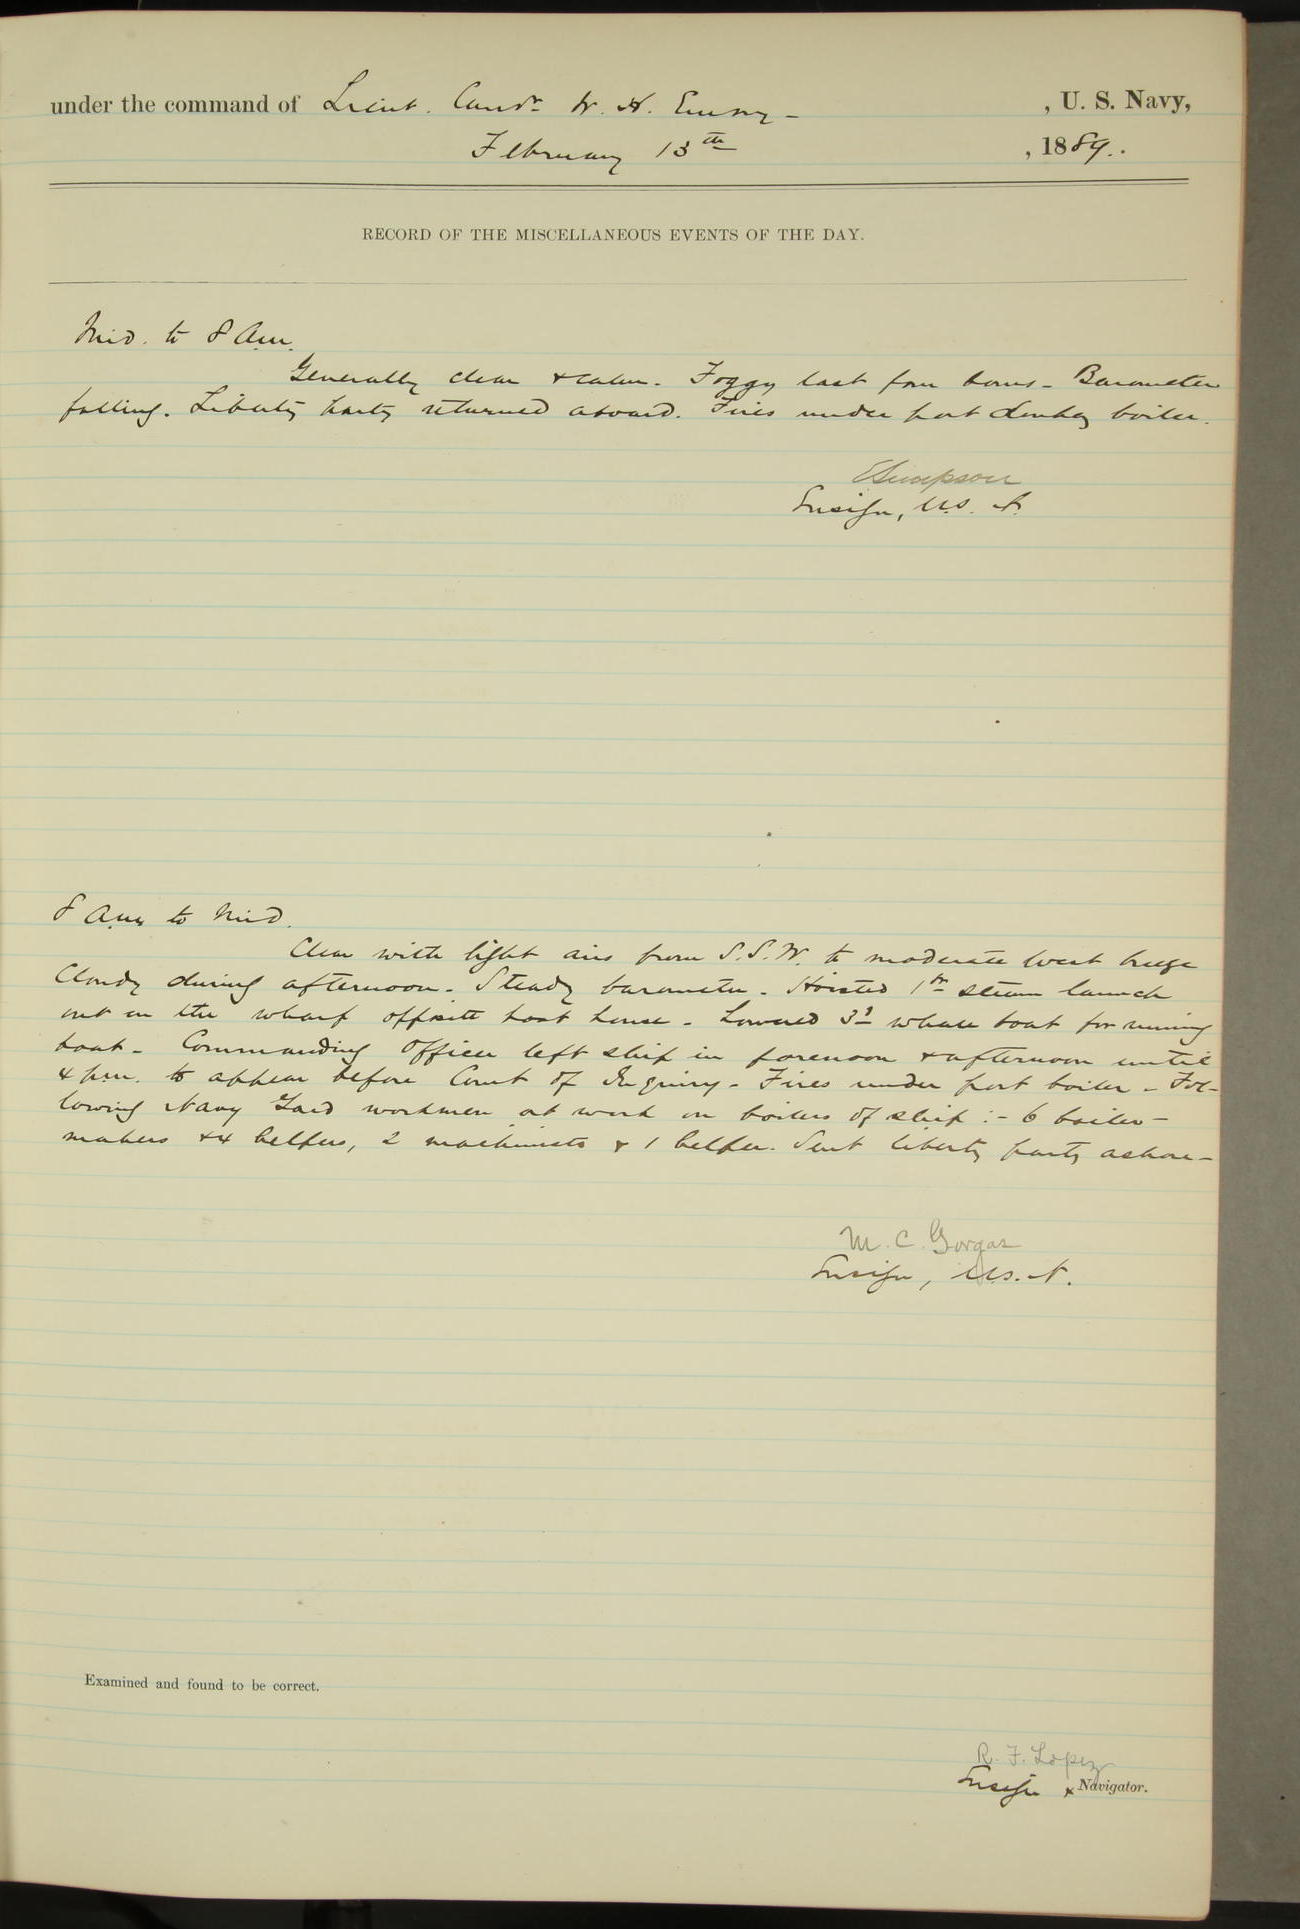 under the command of Lieut. Comdr W. H. Emory - , U. S. Navy,
February 13th , 1889.
RECORD OF THE MISCELLANEOUS EVENTS OF THE DAY.
Mid. to 8 A.m.
Generally clear & calm. Foggy last four hours - Barometer
falling. Liberty party returned aboard. Fires under port donkey boiler.
E Simpson
Ensign, U.S. N.
8 A.m. to Mid.
Clear with light airs from S.S.W. to moderate west breeze
Cloudy during afternoon. Steady barometer. Hoisted 1st steam launch
out on the wharf opposite boat house - Lowered 3d whale boat for running
boat - Commanding Officer left ship in forenoon & afternoon until
4 p.m. to appear before Court of Inquiry - Fires under port boiler - Fol-
lowing Navy Yard workmen at work on boilers of ship :- 6 boiler-
makers & 4 helpers, 2 machinists & 1 helper. Sent liberty party ashore -
M. C. Gorgas
Ensign, U.S. N.
Examined and found to be correct.
R. F. Lopez
Ensign & Navigator.